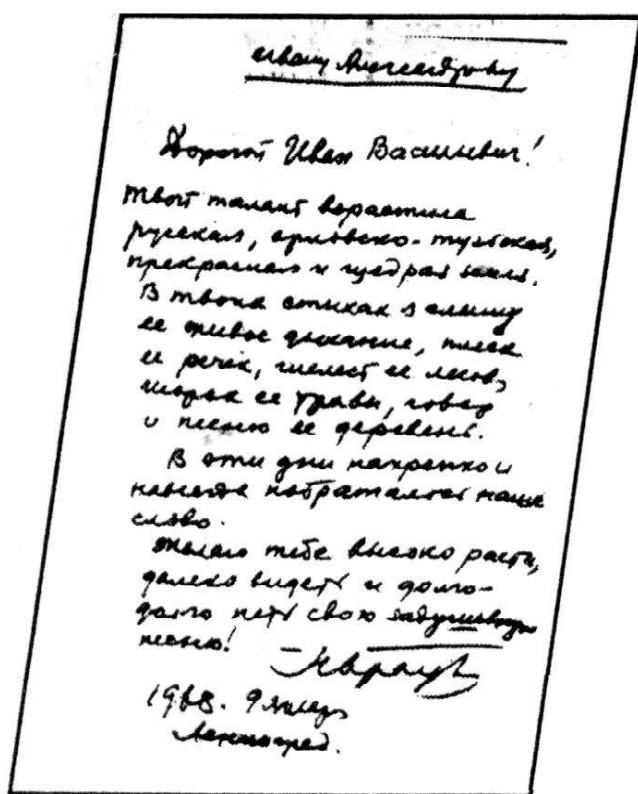 Ивану Александрову
Дорогой Иван Васильевич!
Твой талант взрастила
русская, орловско-тульская,
прекрасная и щедрая земля.
В твоих стихах я слышу
ее живое дыхание, плеск
ее речек, шелест ее лесов,
шорох ее травы, говор
и песню ее деревень.
В эти дни накрепко и
навсегда побраталось наше
слово.
Желаю тебе высоко расти,
далеко видеть и долго-
долго петь свою задушевную
песню!
1968. 9
Ленинград.